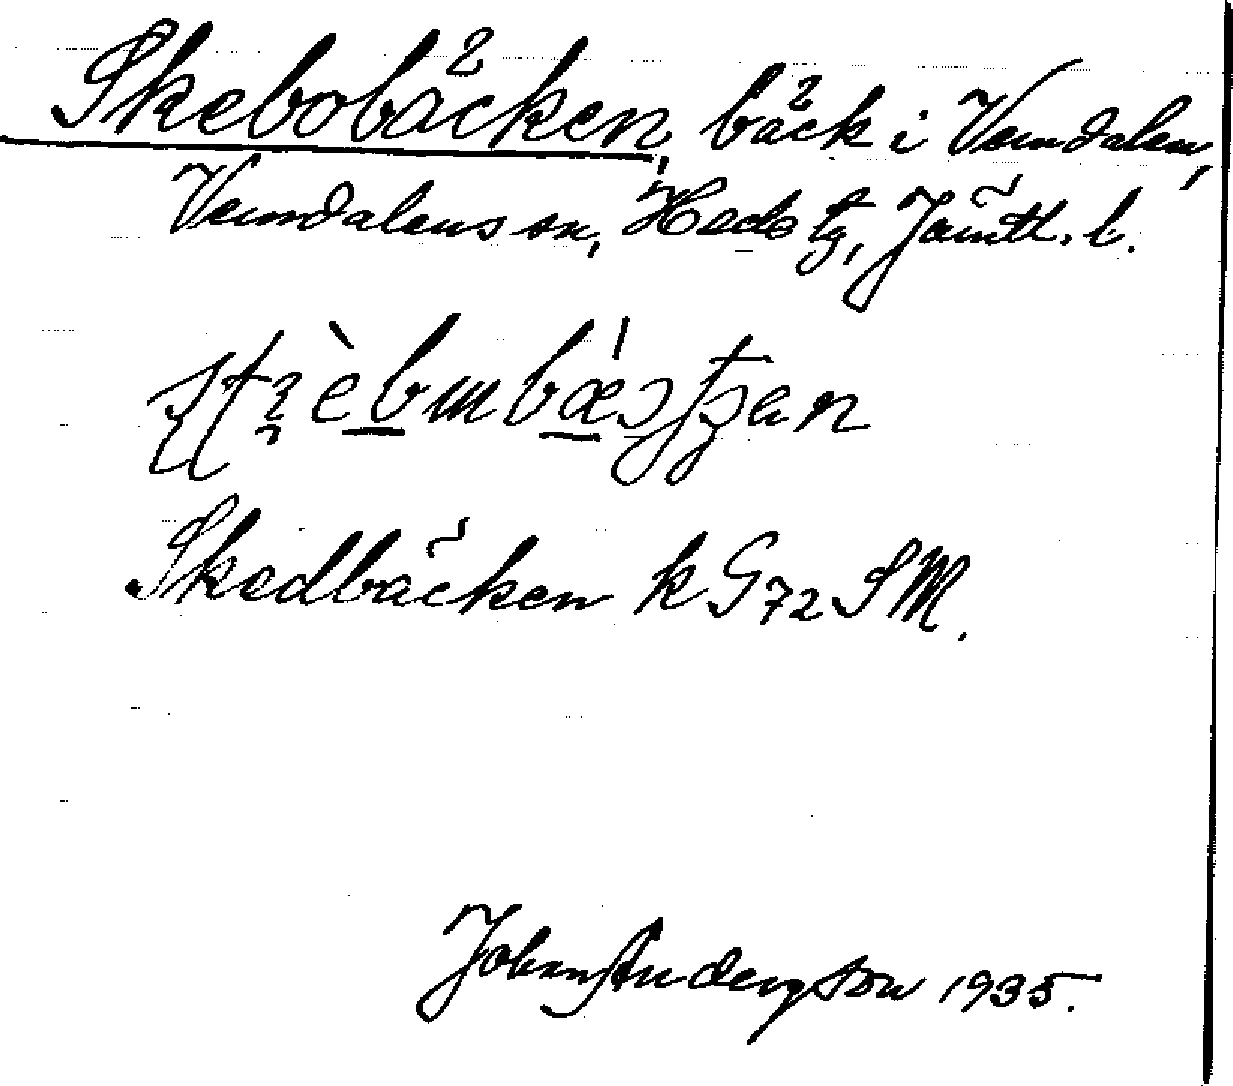 Skebobäcken, bäck i Vemdalen,
Vemdalens sn, Hede tg, Jämtl. l.
Skedbäcken k G72 SM.
Johan Anderson 1935.